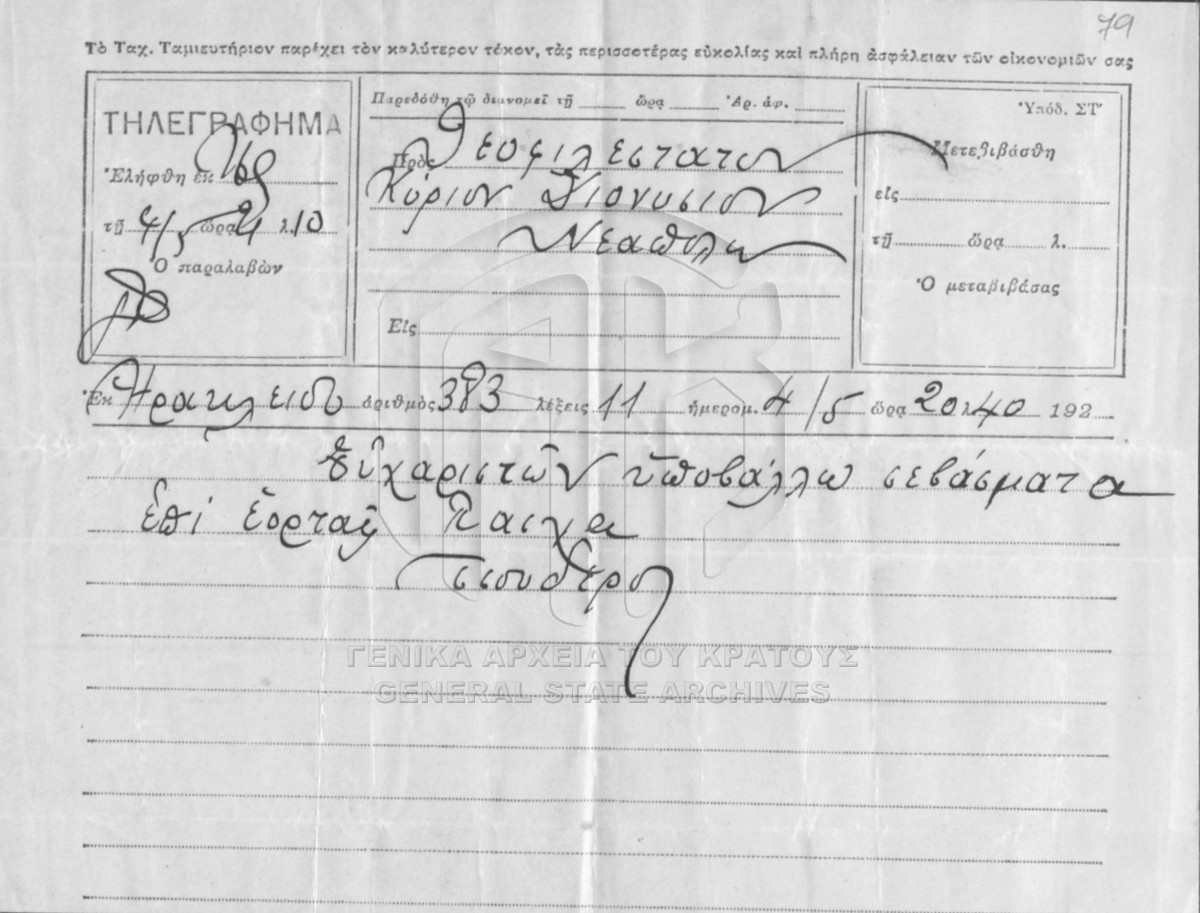 79
Τὸ Ταχ. Ταμιευτήριον παρέχει τὸν καλύτερον τόκον, τὰς περισσοτέρας εὐκολίας καὶ πλήρη ἀσφάλειαν τῶν οἰκονομιῶν σας
ΤΗΛΕΓΡΑΦΗΜΑ
Ἐλήφθη ἐκ
τῇ 4/5 ὥρᾳ 21 λ. 10
Ὁ παραλαβὼν
Παρεδόθη τῷ διανομεῖ τῇ ὥρᾳ Ἀρ. ἀφ.
Πρὸς Θεοφιλεστατον
Κύριον Διονυσιον
Νεαπολιν
Εἰς
Ὑπόδ. ΣΤ'
Μετεβιβάσθη
εἰς
τῇ ὥρᾳ λ.
Ὁ μεταβιβάσας
Ἐκ Ἡρακλειου ἀριθμὸς 383 λέξεις 11 ἡμερομ. 4/5 ὥρᾳ 20 λ 40 192
Εὐχαριστῶν ὑποβάλλω σεβάσματα
ἐπὶ ἑορταῖς Πασχα
Τσουδερος
ΓΕΝΙΚΑ ΑΡΧΕΙΑ ΤΟΥ ΚΡΑΤΟΥΣ
GENERAL STATE ARCHIVES